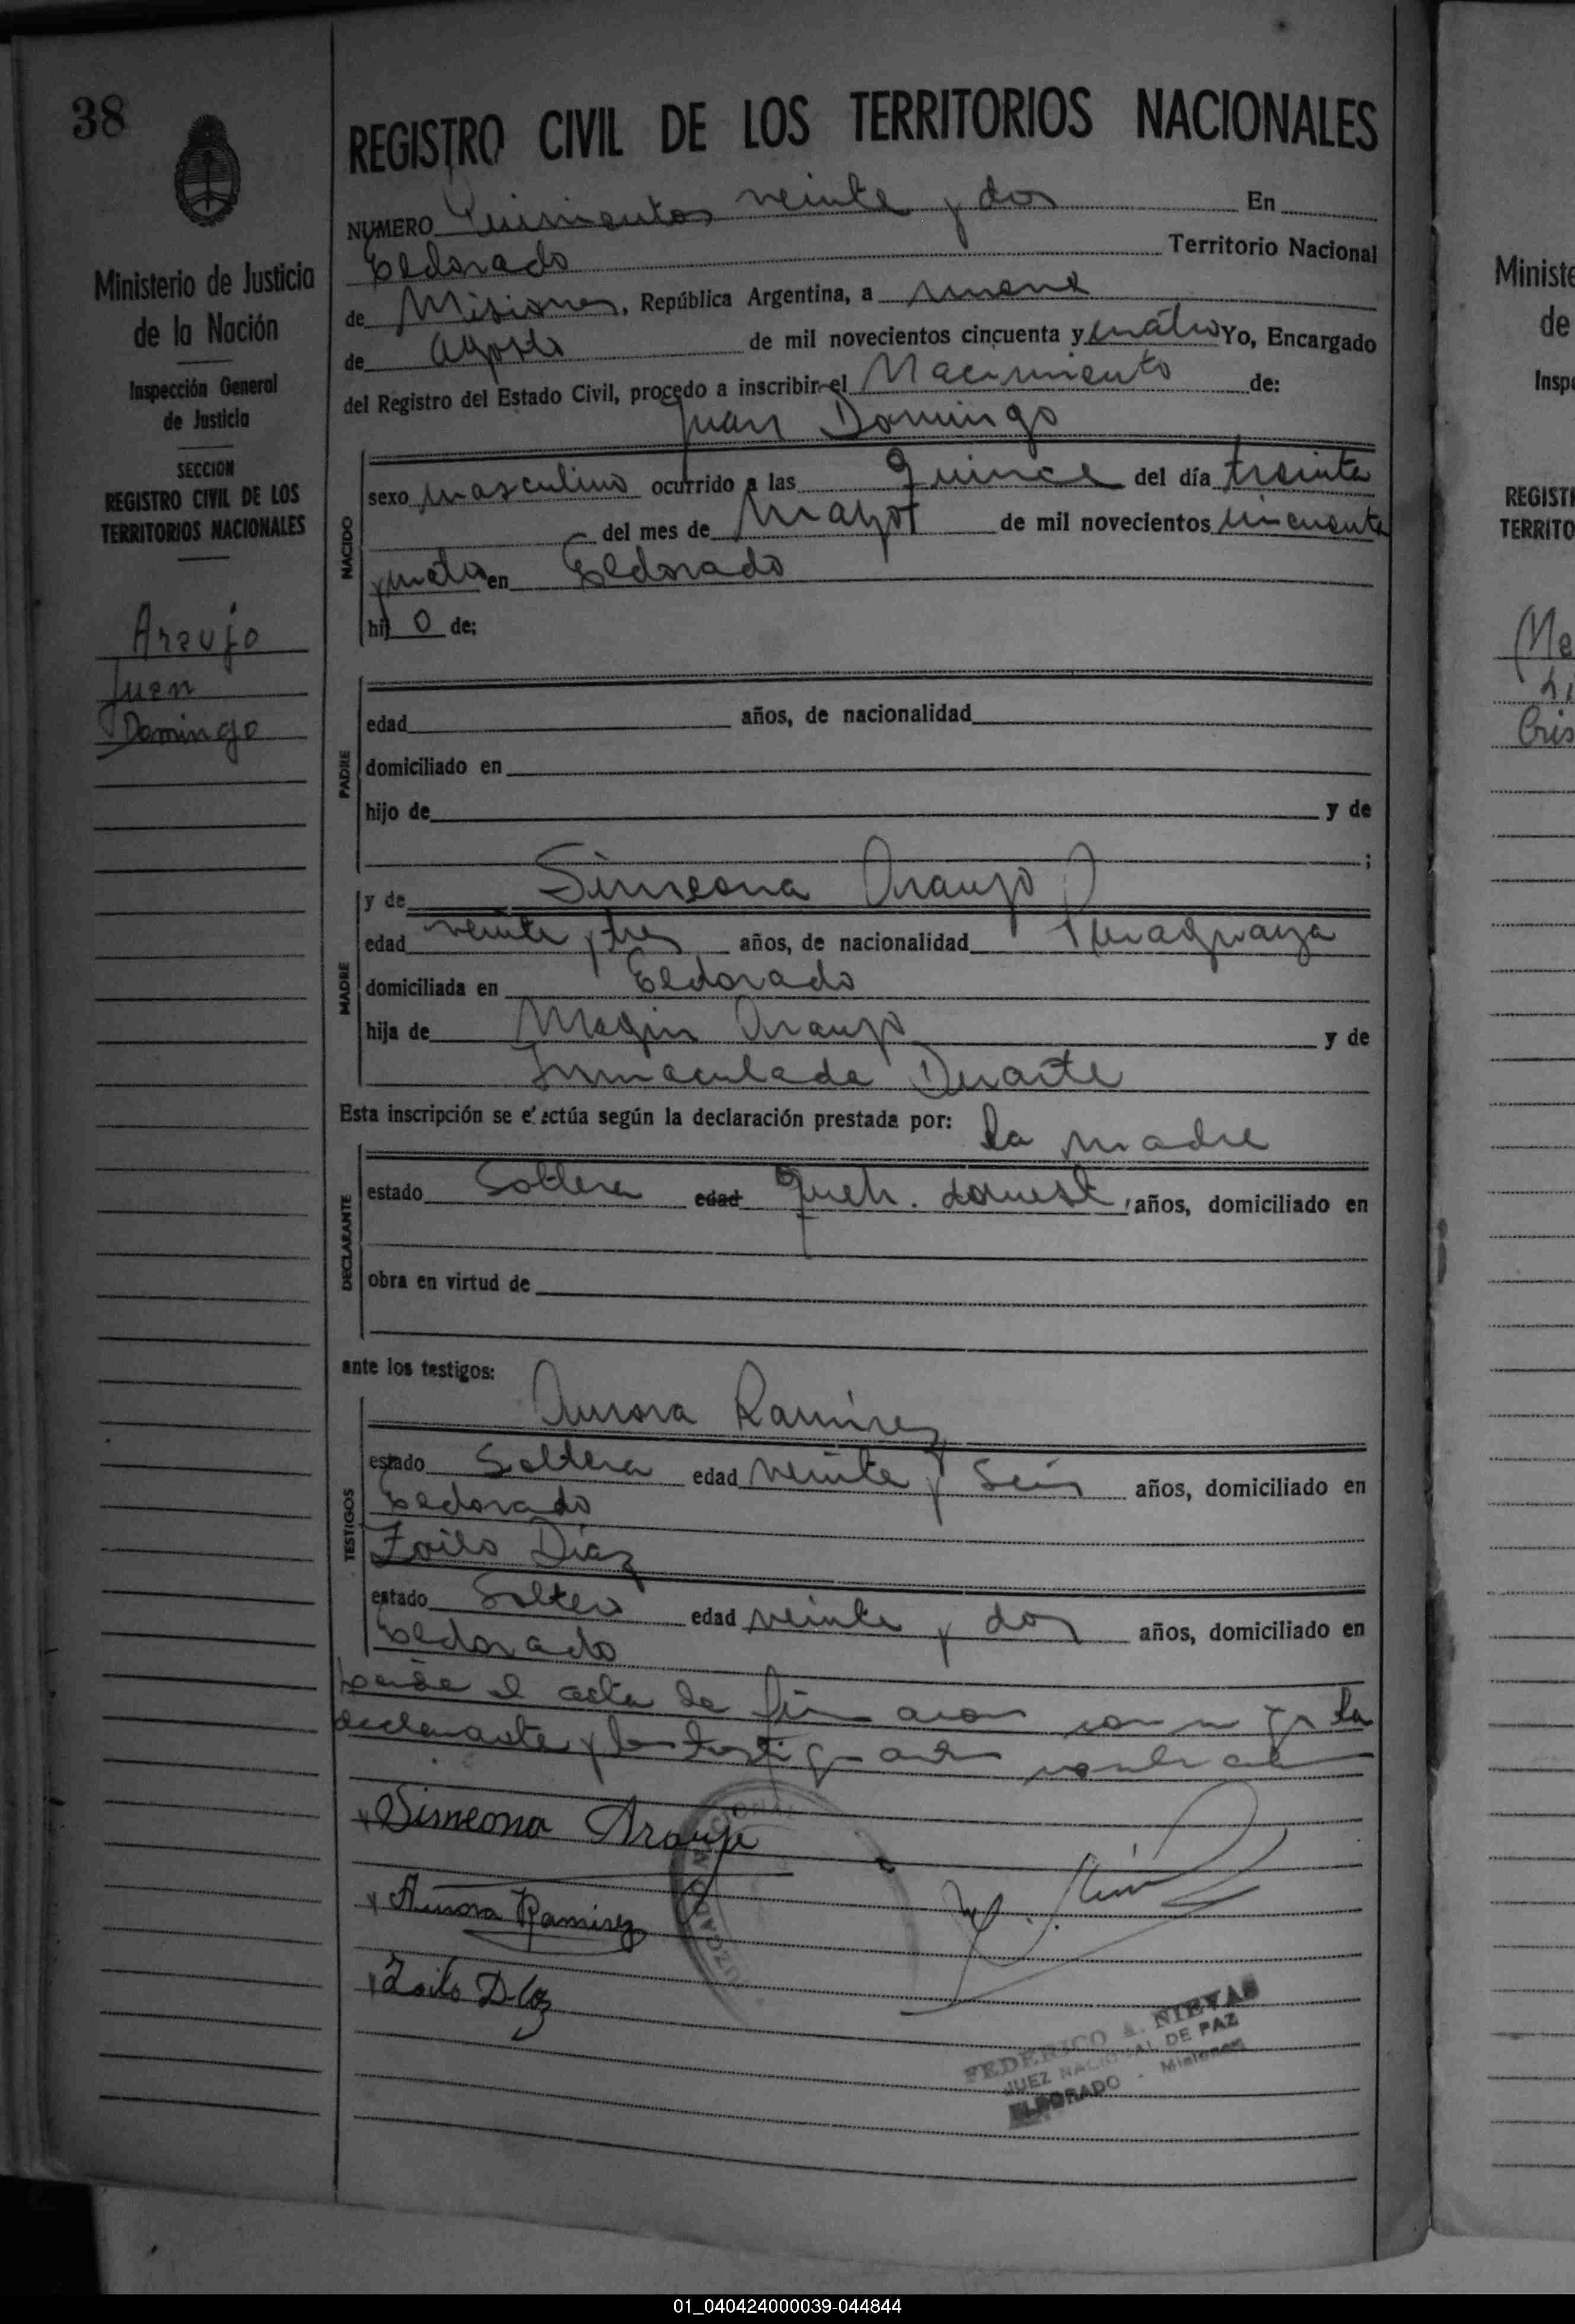 38
Ministerio de Justicia
de la Nación
Inspección General
de Justicia
SECCION
REGISTRO CIVIL DE LOS
TERRITORIOS NACIONALES
Araujo
Juan
Domingo
REGISTRO CIVIL DE LOS TERRITORIOS NACIONALES
NUMERO Quinientos veinte y dos En
Eldorado Territorio Nacional
de Misiones, República Argentina, a nueve
de Agosto de mil novecientos cincuenta y cuatro Yo, Encargado
del Registro del Estado Civil, procedo a inscribir el Nacimiento de:
Juan Domingo
NACIDO
sexo masculino ocurrido a las quince del día treinta
del mes de Mayo de mil novecientos cincuenta
y cuatro en Eldorado
hij o de:
PADRE
edad años, de nacionalidad
domiciliado en
hijo de y de
;
MADRE
y de Simeona Araujo
edad veinte y tres años, de nacionalidad Paraguaya
domiciliada en Eldorado
hija de Magin Araujo y de
Inmaculada Duarte
Esta inscripción se efectúa según la declaración prestada por: la madre
DECLARANTE
estado Soltera edad queh. domest, años, domiciliado en
obra en virtud de
ante los testigos:
TESTIGOS
Aurora Ramirez
estado Soltera edad veinte y seis años, domiciliado en
Eldorado
Zoilo Diaz
estado Soltero edad veinte y dos años, domiciliado en
Eldorado
el acta la firmaron la
declarante y los testigos
x Simeona Araujo
x Aurora Ramirez
x Zoilo Diaz
FEDERICO A. NIEVAS
JUEZ NACIONAL DE PAZ
ELDORADO - Misiones
Ministe
de
Inspe
REGISTI
TERRITO
Cris
01_040424000039-044844